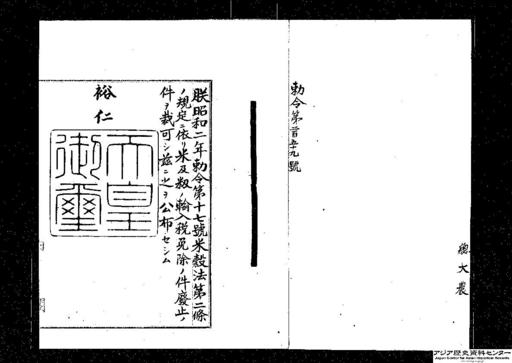 勅令第百五十九號
總 大 農
朕昭和二年勅令第十七號米穀法第二條
ノ規定ニ依リ米及籾ノ輸入税免除ノ件廢止ノ
件ヲ裁可シ茲ニ之ヲ公布セシム
裕仁
天皇
御璽
アジア歴史資料センター
Japan Center for Asian Historical Records